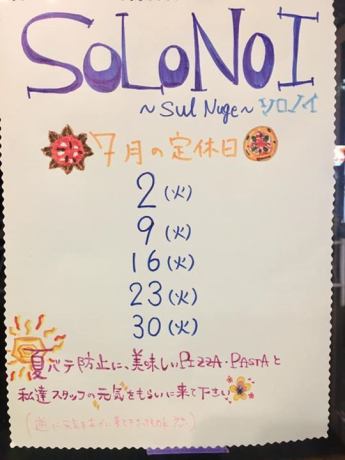 SOLONOI
～Sul Nuge～ソロノイ
7月の定休日
2(火)
9(火)
16(火)
23(火)
30(火)
夏バテ防止に、美味しいPIZZA・PASTAと
私達スタッフの元気をもらいに来て下さい